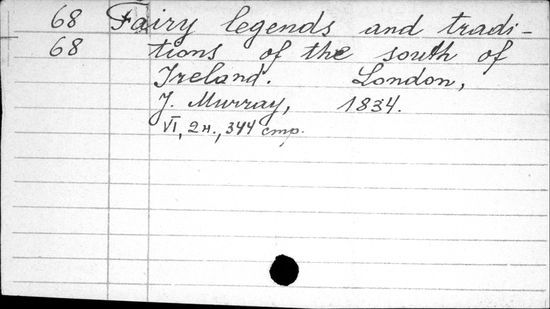 68 Fairy legends and tradi-
68 tions of the south of
Ireland. London,
J. Murray, 1834.
VI, 2 н., 344 стр.